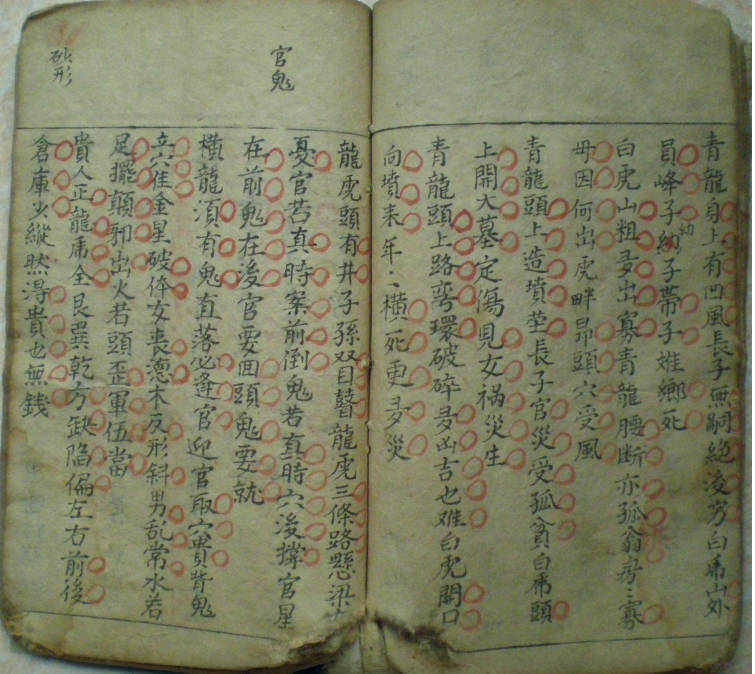 青龍身上有凹風長子無嗣絕後穷白乕山外
員峰子幼子帶子姓鄉死
白虎山粗多出寡青龍腰断亦孤翁房〻寡
毋因何出虎畔昂頭穴受風
青龍頭上造墳塋長子官災受孤貧白乕頭
上開大墓定傷児女禍災生
青龍頭上路弯環破碎多凶吉也难白虎開口
向墳来年〻橫死更多災
龍虎頭有井子孫双目瞽龍虎三條路懸梁
官鬼
憂官若真時案前倒鬼若真時穴後撐官星
在前鬼在後官要回頭鬼要就
橫龍湏有鬼直落必逢官迎官取賓背鬼
立穴隹金星破倅女喪德木反形斜男乱常水若
足擺顛邪出火若頭歪軍伍當
砂形
貴人正龍乕全艮巽乾方缺陷偏左右前後
倉庫少縱然淂貴也無銭